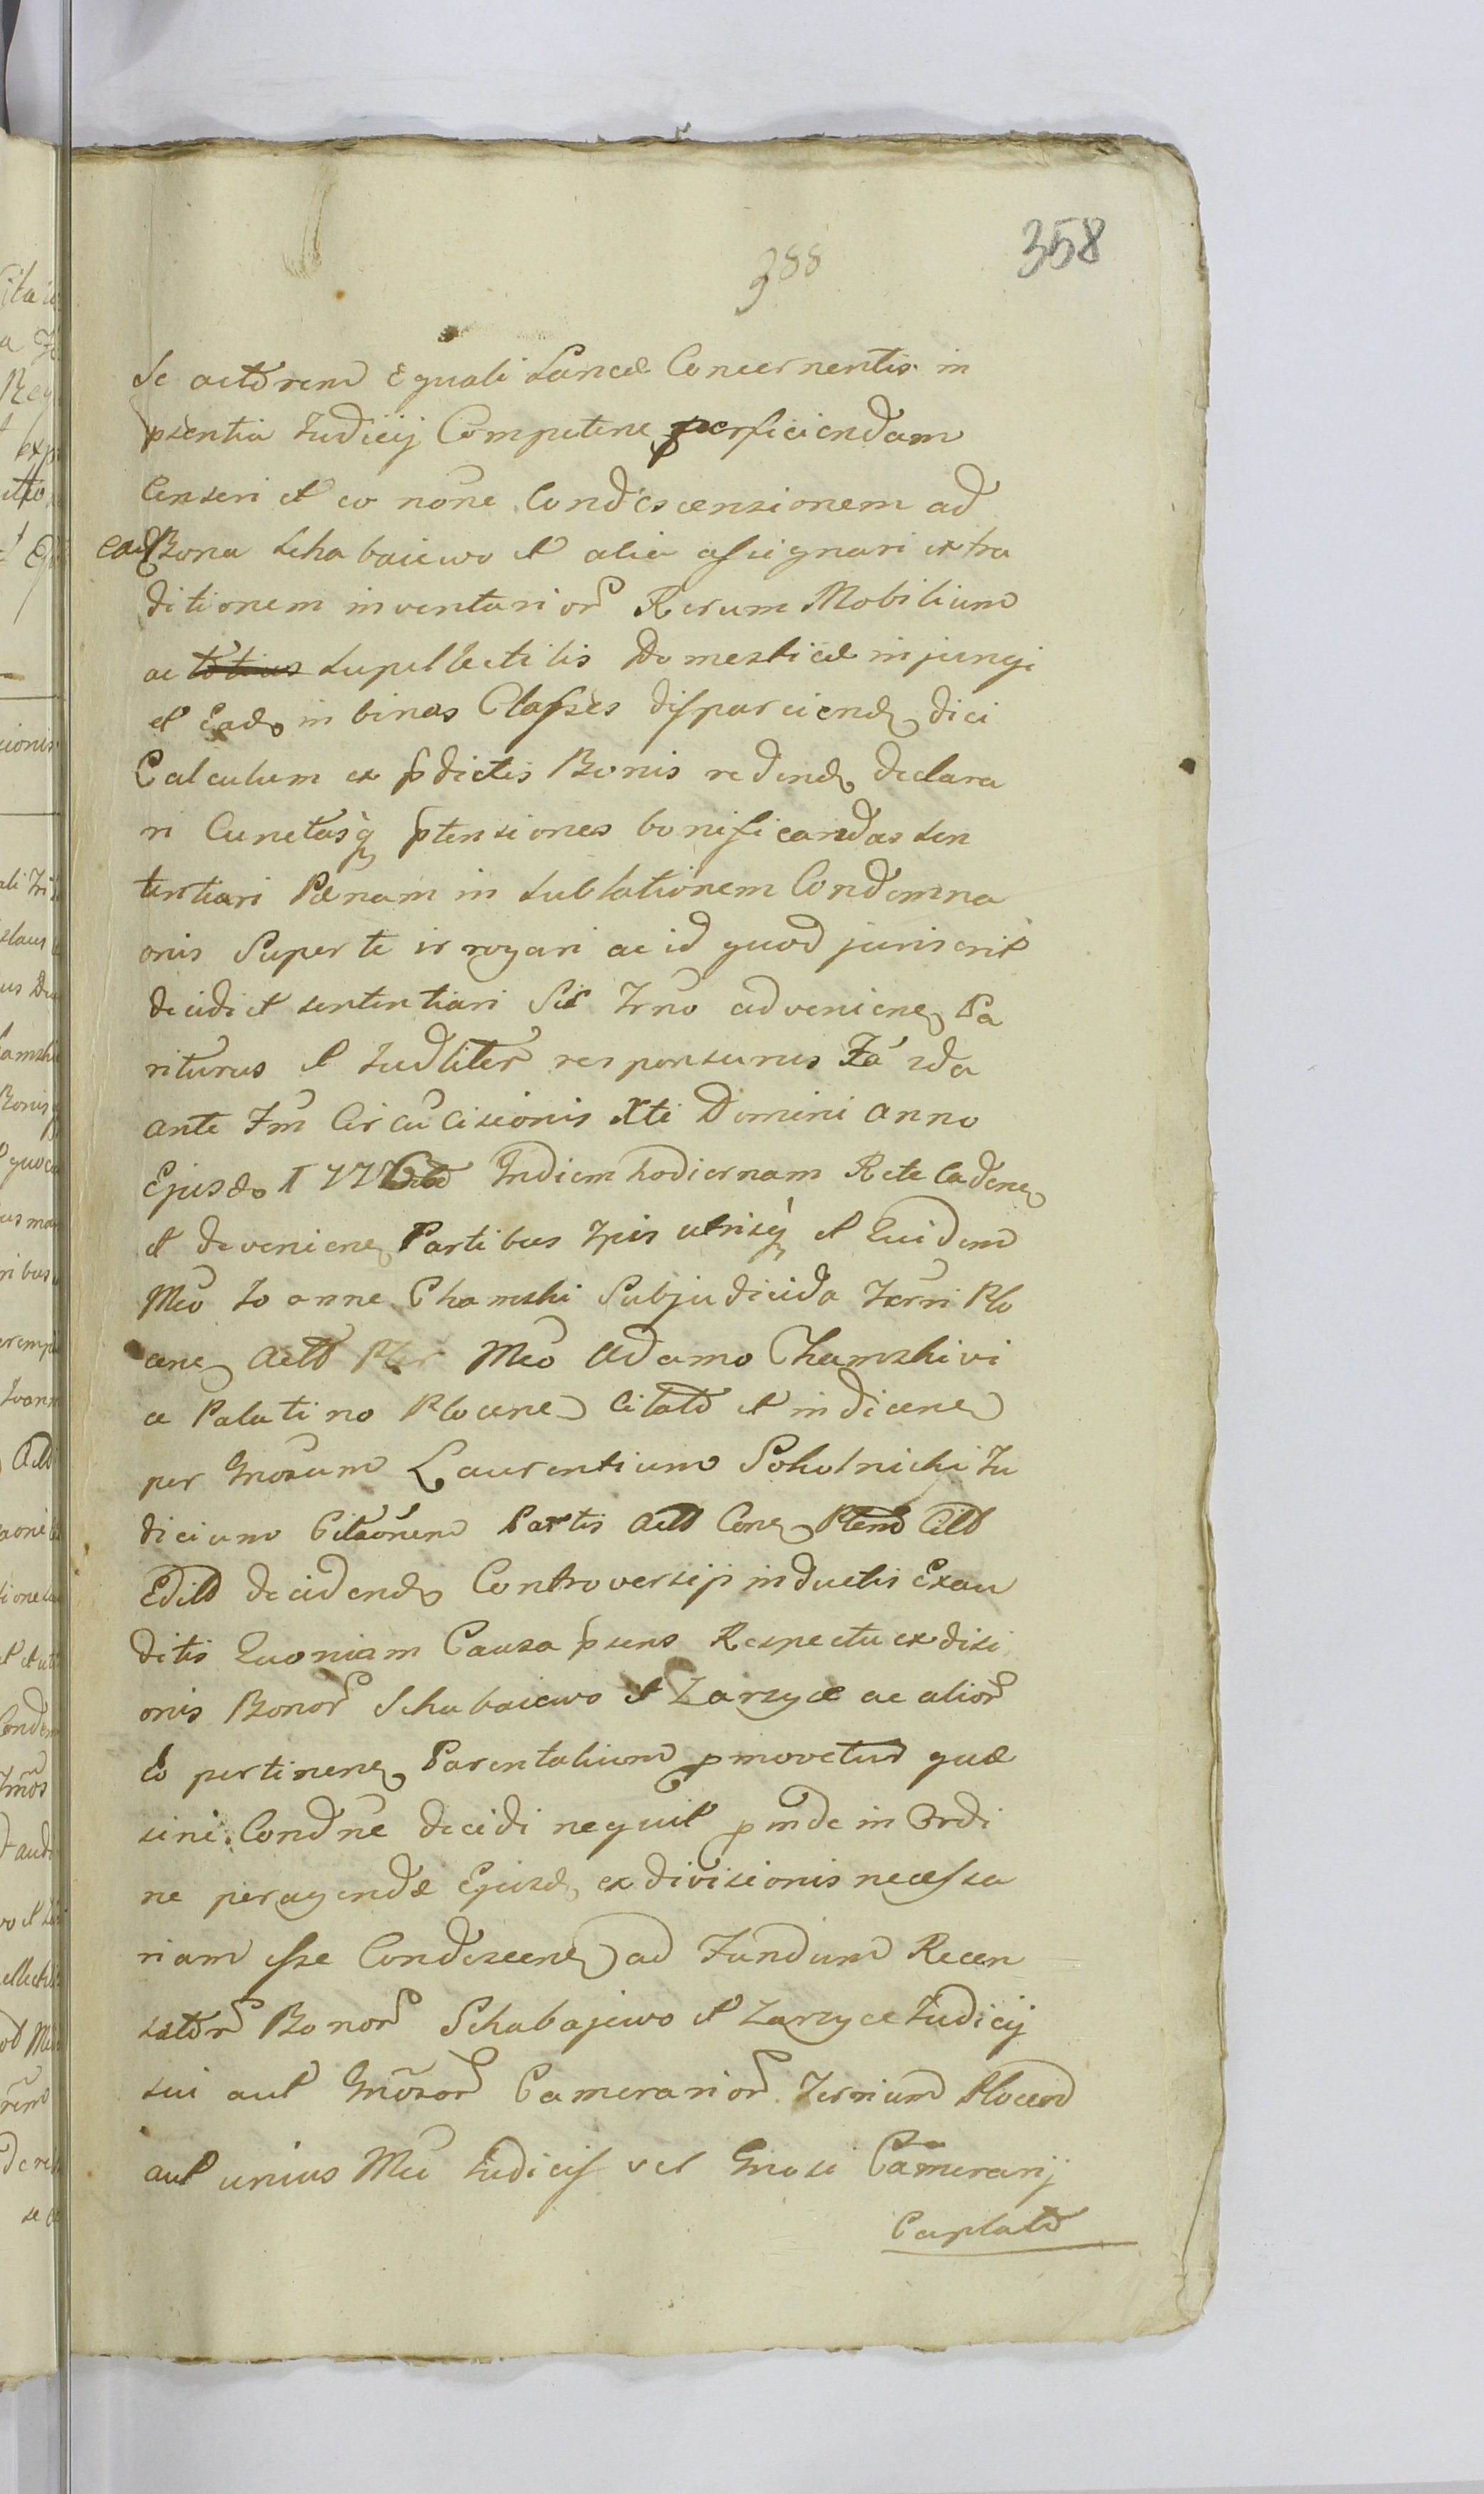 358
388
Se actorem Equali Lance Concernentis in
psentia Judicij Competene perficiendam
Censeri et eo none Condescensionem ad
eadBona Schabaiewo et alia assignari extra
ditionem inventarior Rerum Mobilium
ac totius supellectilis Domesticæ injungi
et Ead in binas Classes disparciend dici
Calculum ex pdictis Bonis redend declara
ri Cunctasq ptensiones bonificandas sen
tentiari Pænam in sublationem Condemna
onis Super te irrogari ac id quod juris erit
decidi et sententiari Sis Trno adveniene Pa
riturus et Judliter responsurus Fa 2da
ante Fm Circucisionis Xti Domini anno
Ejusd 1776 Indiem hodiernam Rete Cadene
et deveniene Partibus Ipsis utrisq et Quidem
Mco Joanne Chamski Subjudice Terri Plo
cene Actt Pter Mco Adamo Chamski vi
ce Palatino Plocene Citato et indicene
per Gnosum Laurentium Sokolnicki Ju
dicium Citaonem Partis Actt Cone Ptem Citt
Editt decidend Controversijs inductis Exau
ditis Quoniam Causa psens Respectu exdisi
onis Bonor Schabaiewo et Zarzyce ac alior
Eo pertinene Parentalium pmovetur quæ
sine Condne decidi nequit pinde in Ordi
ne peragendæ Ejusd exdivisionis necessa
riam esse Condescene ad Fundum Recen
sator Bonor Schabajewo et Zarzyce Judicij
sui aut Gnosor Camerarior Terrium Plocen
aut unius Mci Judicis vel Gnosi Camerarij
Captato